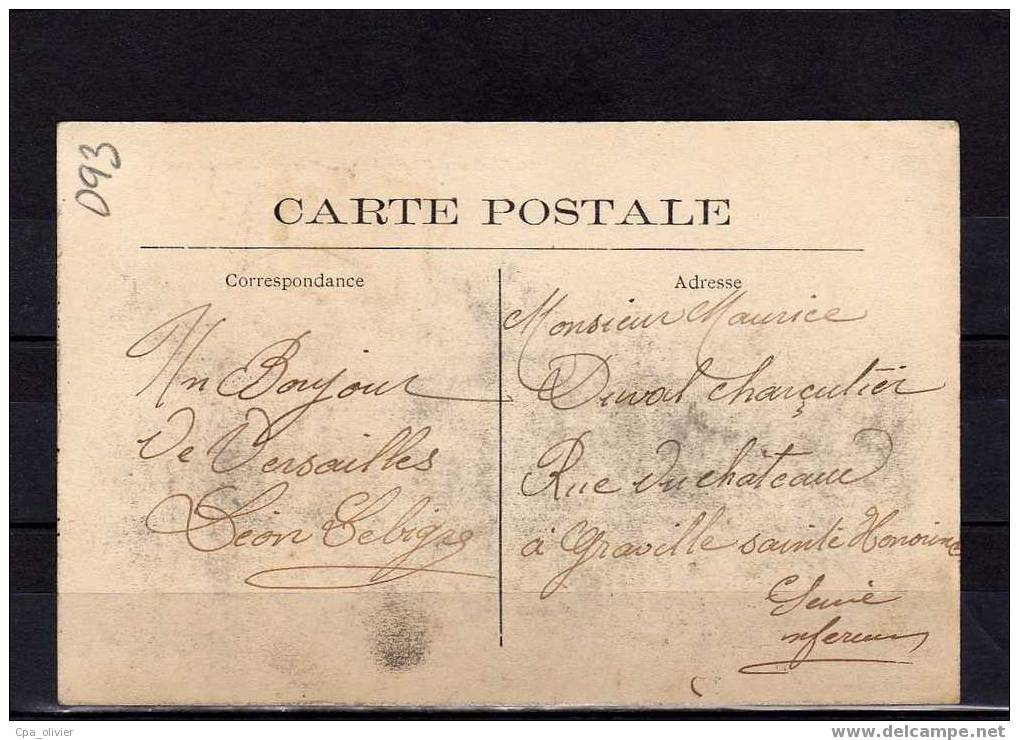 093
CARTE POSTALE
Correspondance
Un Bonjour
de Versailles
Léon Lebigre
Adresse
Monsieur Maurice
Duval charçutier
Rue du château
à Graville sainte Honorine
Seine
inferieure
Cpa_olivier
www.delcampe.net